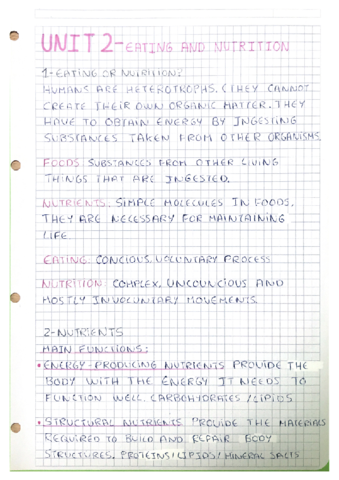 UNIT 2-EATING AND NUTRITION
1-EATING OR NUTRITION?
HUMANS ARE HETEROTROPHS. (THEY CANNOT
CREATE THEIR OWN ORGANIC MATTER. THEY
HAVE TO OBTAIN ENERGY BY INGESTING
SUBSTANCES TAKEN FROM OTHER ORGANISMS.
FOODS. SUBSTANCES FROM OTHER LIVING
THINGS THAT ARE INGESTED.
NUTRIENTS. SIMPLE MOLECULES IN FOODS.
THEY ARE NECESSARY FOR MAINTAINING
LIFE
EATING. CONCIOUS, VOLUNTARY PROCESS
NUTRITION. COMPLEX, UNCOUNCIOUS AND
MOSTLY INVOLUNTARY MOVEMENTS.
2-NUTRIENTS
MAIN FUNCTIONS:
• ENERGY-PRODUCING NUTRIENTS PROVIDE THE
BODY WITH THE ENERGY IT NEEDS TO
FUNCTION WELL. CARBOHYDRATES/LIPIDS
• STRUCTURAL NUTRIENTS. PROVIDE THE MATERIALS
REQUIRED TO BUILD AND REPAIR BODY
STRUCTURES. PROTEINS/LIPIDS/MINERAL SALTS